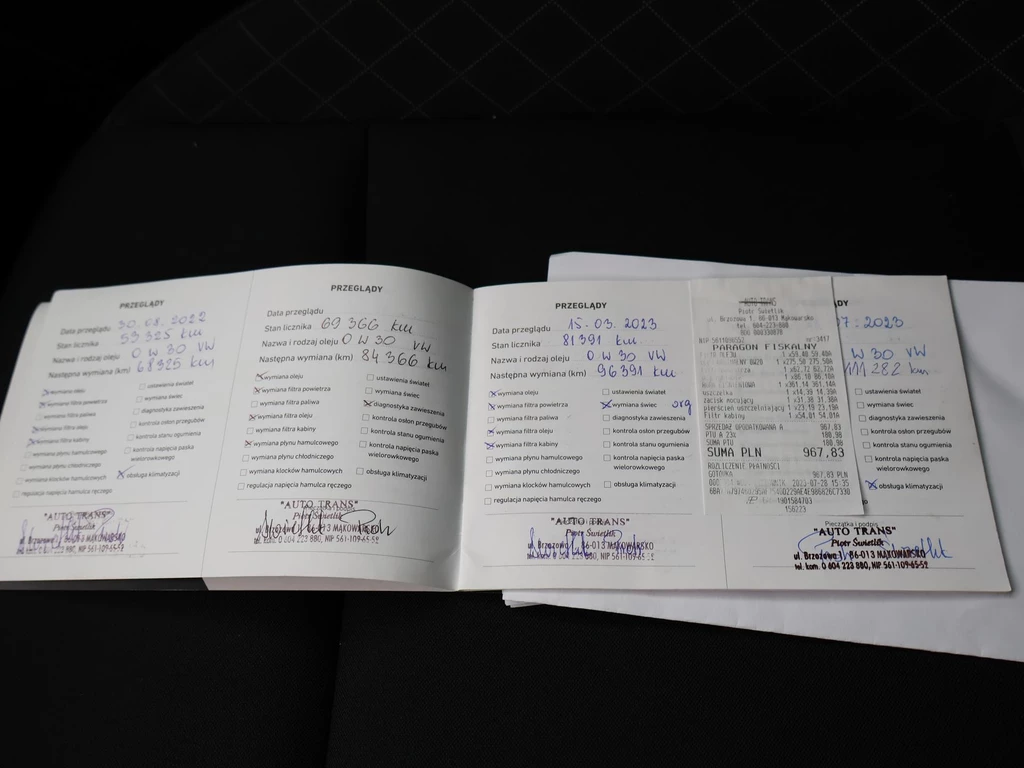 PRZEGLĄDY
30.08.2022
Stan licznika 53 325 km
Nazwa i rodzaj oleju 0 W 30 VW
Następna wymiana (km) 68325 km
wymiana oleju
ustawienia świateł
wymiana filtra powietrza
wymiana świec
wymiana filtra paliwa
diagnostyka zawieszenia
wymiana filtra oleju
kontrola osłon przegubów
wymiana filtra kabiny
kontrola stanu ogumienia
wymiana płynu hamulcowego
kontrola napięcia paska
wielorowkowego
wymiana płynu chłodniczego
wymiana klocków hamulcowych
obsługa klimatyzacji
regulacja napięcia hamulca ręcznego
"AUTO TRANS"
Piotr Świetlik
ul. Brzozowa 1, 86-013 MĄKOWARSKO
tel. kom. 0 604 223 880, NIP 561-109-65-52
PRZEGLĄDY
Data przeglądu
Stan licznika 69 366 km
Nazwa i rodzaj oleju 0 W 30 VW
Następna wymiana (km) 84 366 km
wymiana oleju
ustawienia świateł
wymiana filtra powietrza
wymiana świec
wymiana filtra paliwa
diagnostyka zawieszenia
wymiana filtra oleju
kontrola osłon przegubów
wymiana filtra kabiny
kontrola stanu ogumienia
wymiana płynu hamulcowego
kontrola napięcia paska
wielorowkowego
wymiana płynu chłodniczego
wymiana klocków hamulcowych
obsługa klimatyzacji
regulacja napięcia hamulca ręcznego
"AUTO TRANS"
Piotr Świetlik
ul. Brzozowa 1, 86-013 MĄKOWARSKO
tel. kom. 0 604 223 880, NIP 561-109-65-52
PRZEGLĄDY
Data przeglądu 15.03.2023
Stan licznika 81 391 km
Nazwa i rodzaj oleju 0 W 30 VW
Następna wymiana (km) 96391 km
wymiana oleju
ustawienia świateł
wymiana filtra powietrza
wymiana świec org
wymiana filtra paliwa
diagnostyka zawieszenia
wymiana filtra oleju
kontrola osłon przegubów
wymiana filtra kabiny
kontrola stanu ogumienia
wymiana płynu hamulcowego
kontrola napięcia paska
wielorowkowego
wymiana płynu chłodniczego
wymiana klocków hamulcowych
obsługa klimatyzacji
regulacja napięcia hamulca ręcznego
"AUTO TRANS"
Piotr Świetlik
ul. Brzozowa 1, 86-013 MĄKOWARSKO
tel. kom. 0 604 223 880, NIP 561-109-65-52
AUTO TRANS
Piotr Świetlik
ul. Brzozowa 1, 86-013 Mąkowarsko
tel. 604-223-880
nr:3417
PARAGON FISKALNY
uszczelka
zacisk mocujący
pierścień uszczelniający
Filtr kabiny
SPRZEDAŻ OPODATKOWANA A 967,83
PTU A 23%
SUMA PTU
SUMA PLN 967,83
ROZLICZENIE PŁATNOŚCI
GOTÓWKA 967,83 PLN
2023-07-28 15:35
DY
07.2023
W 30 VW
111 282 km
ustawienia świateł
wymiana świec
diagnostyka zawieszenia
kontrola osłon przegubów
kontrola stanu ogumienia
kontrola napięcia paska
wielorowkowego
obsługa klimatyzacji
Pieczątka i podpis
"AUTO TRANS"
Piotr Świetlik
ul. Brzozowa 1, 86-013 MĄKOWARSKO
tel. kom. 0 604 223 880, NIP 561-109-65-52